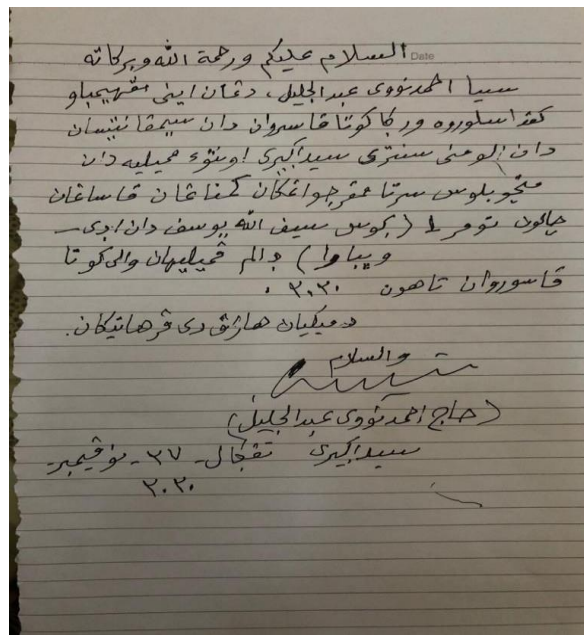 السلام عليكم ورحمة الله وبركاته
Date
سيا احمد نووى عبدالجليل، دڠان اينى مڠهيمباو
كفد سلوروه ورڬا كوتا ڤاسروان دان سيمڤاتيسان
دان الومنى سنترى سيداڬيرى اونتوء مميليه دان
منچوبلوس سرتا ممڤرجواڠكان كمناڠان ڤاساڠان
چالون نومر ١ (ڬوس سيف الله يوسف دان ادى -
ويباوا) دالم ڤميليهان والى كوتا
ڤاسوروان تاهون ٢٠٢٠.
دميكيان هاراڤ دى ڤرهاتيكان.
والسلام
(حاج احمد نووى عبدالجليل)
سيداڬيرى تڠڬال - ٢٧ - نوڤيمبر -
٢٠٢٠